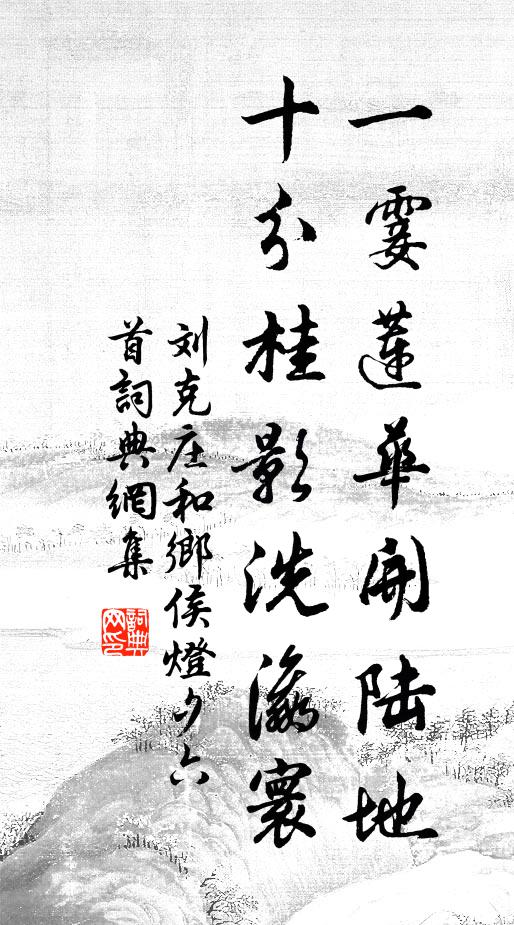 一霎蓮華開陆地
十分桂影洗瀛寰
刘克庄和鄉侯燈夕六
首詞典網集
詞典网印